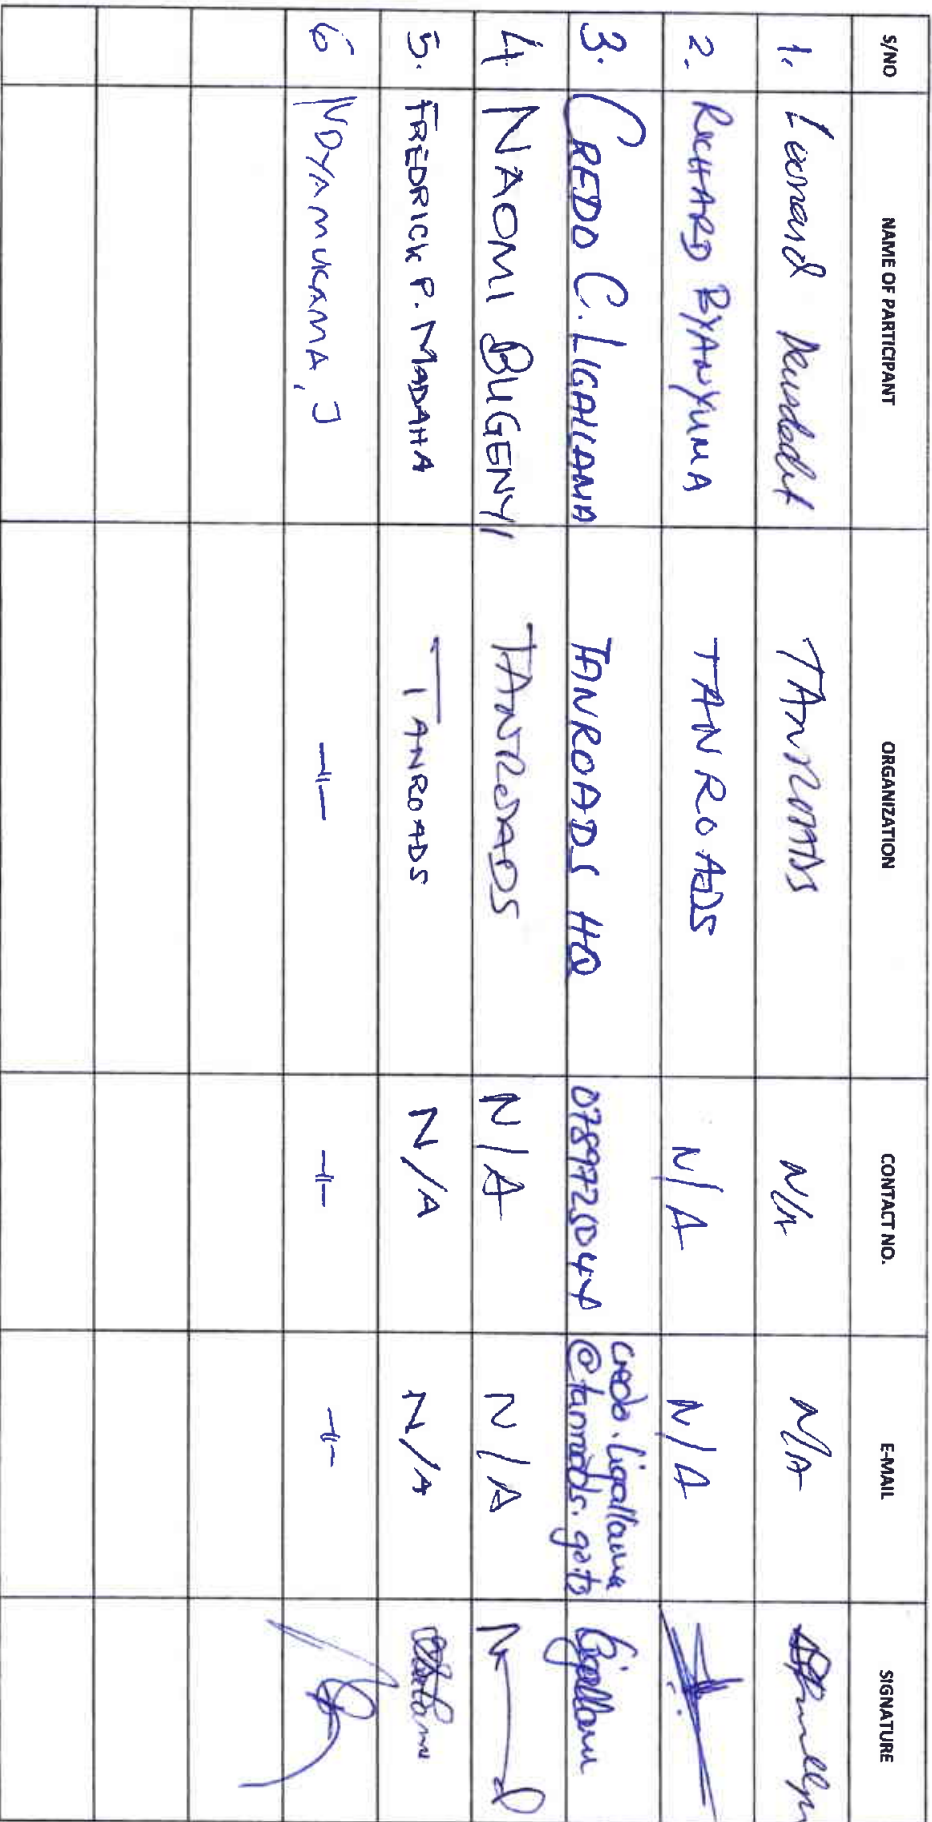 S/NO NAME OF PARTICIPANT ORGANIZATION CONTACT NO. E-MAIL SIGNATURE
1. Leonard TANROADS N/A N/A
2. RICHARD BYANYUMA TANROADS N/A N/A
3. CREDO C. LIGALLAMA TANROADS HQ 0789725044 credo.ligallama
@tanroads.go.tz Ligallama
4 NAOMI BUGENYI TANROADS N/A N/A
5. FREDRICK P. MADAHA TANROADS N/A N/A
6 NDYAMUKAMA, J —"— —"— —"—